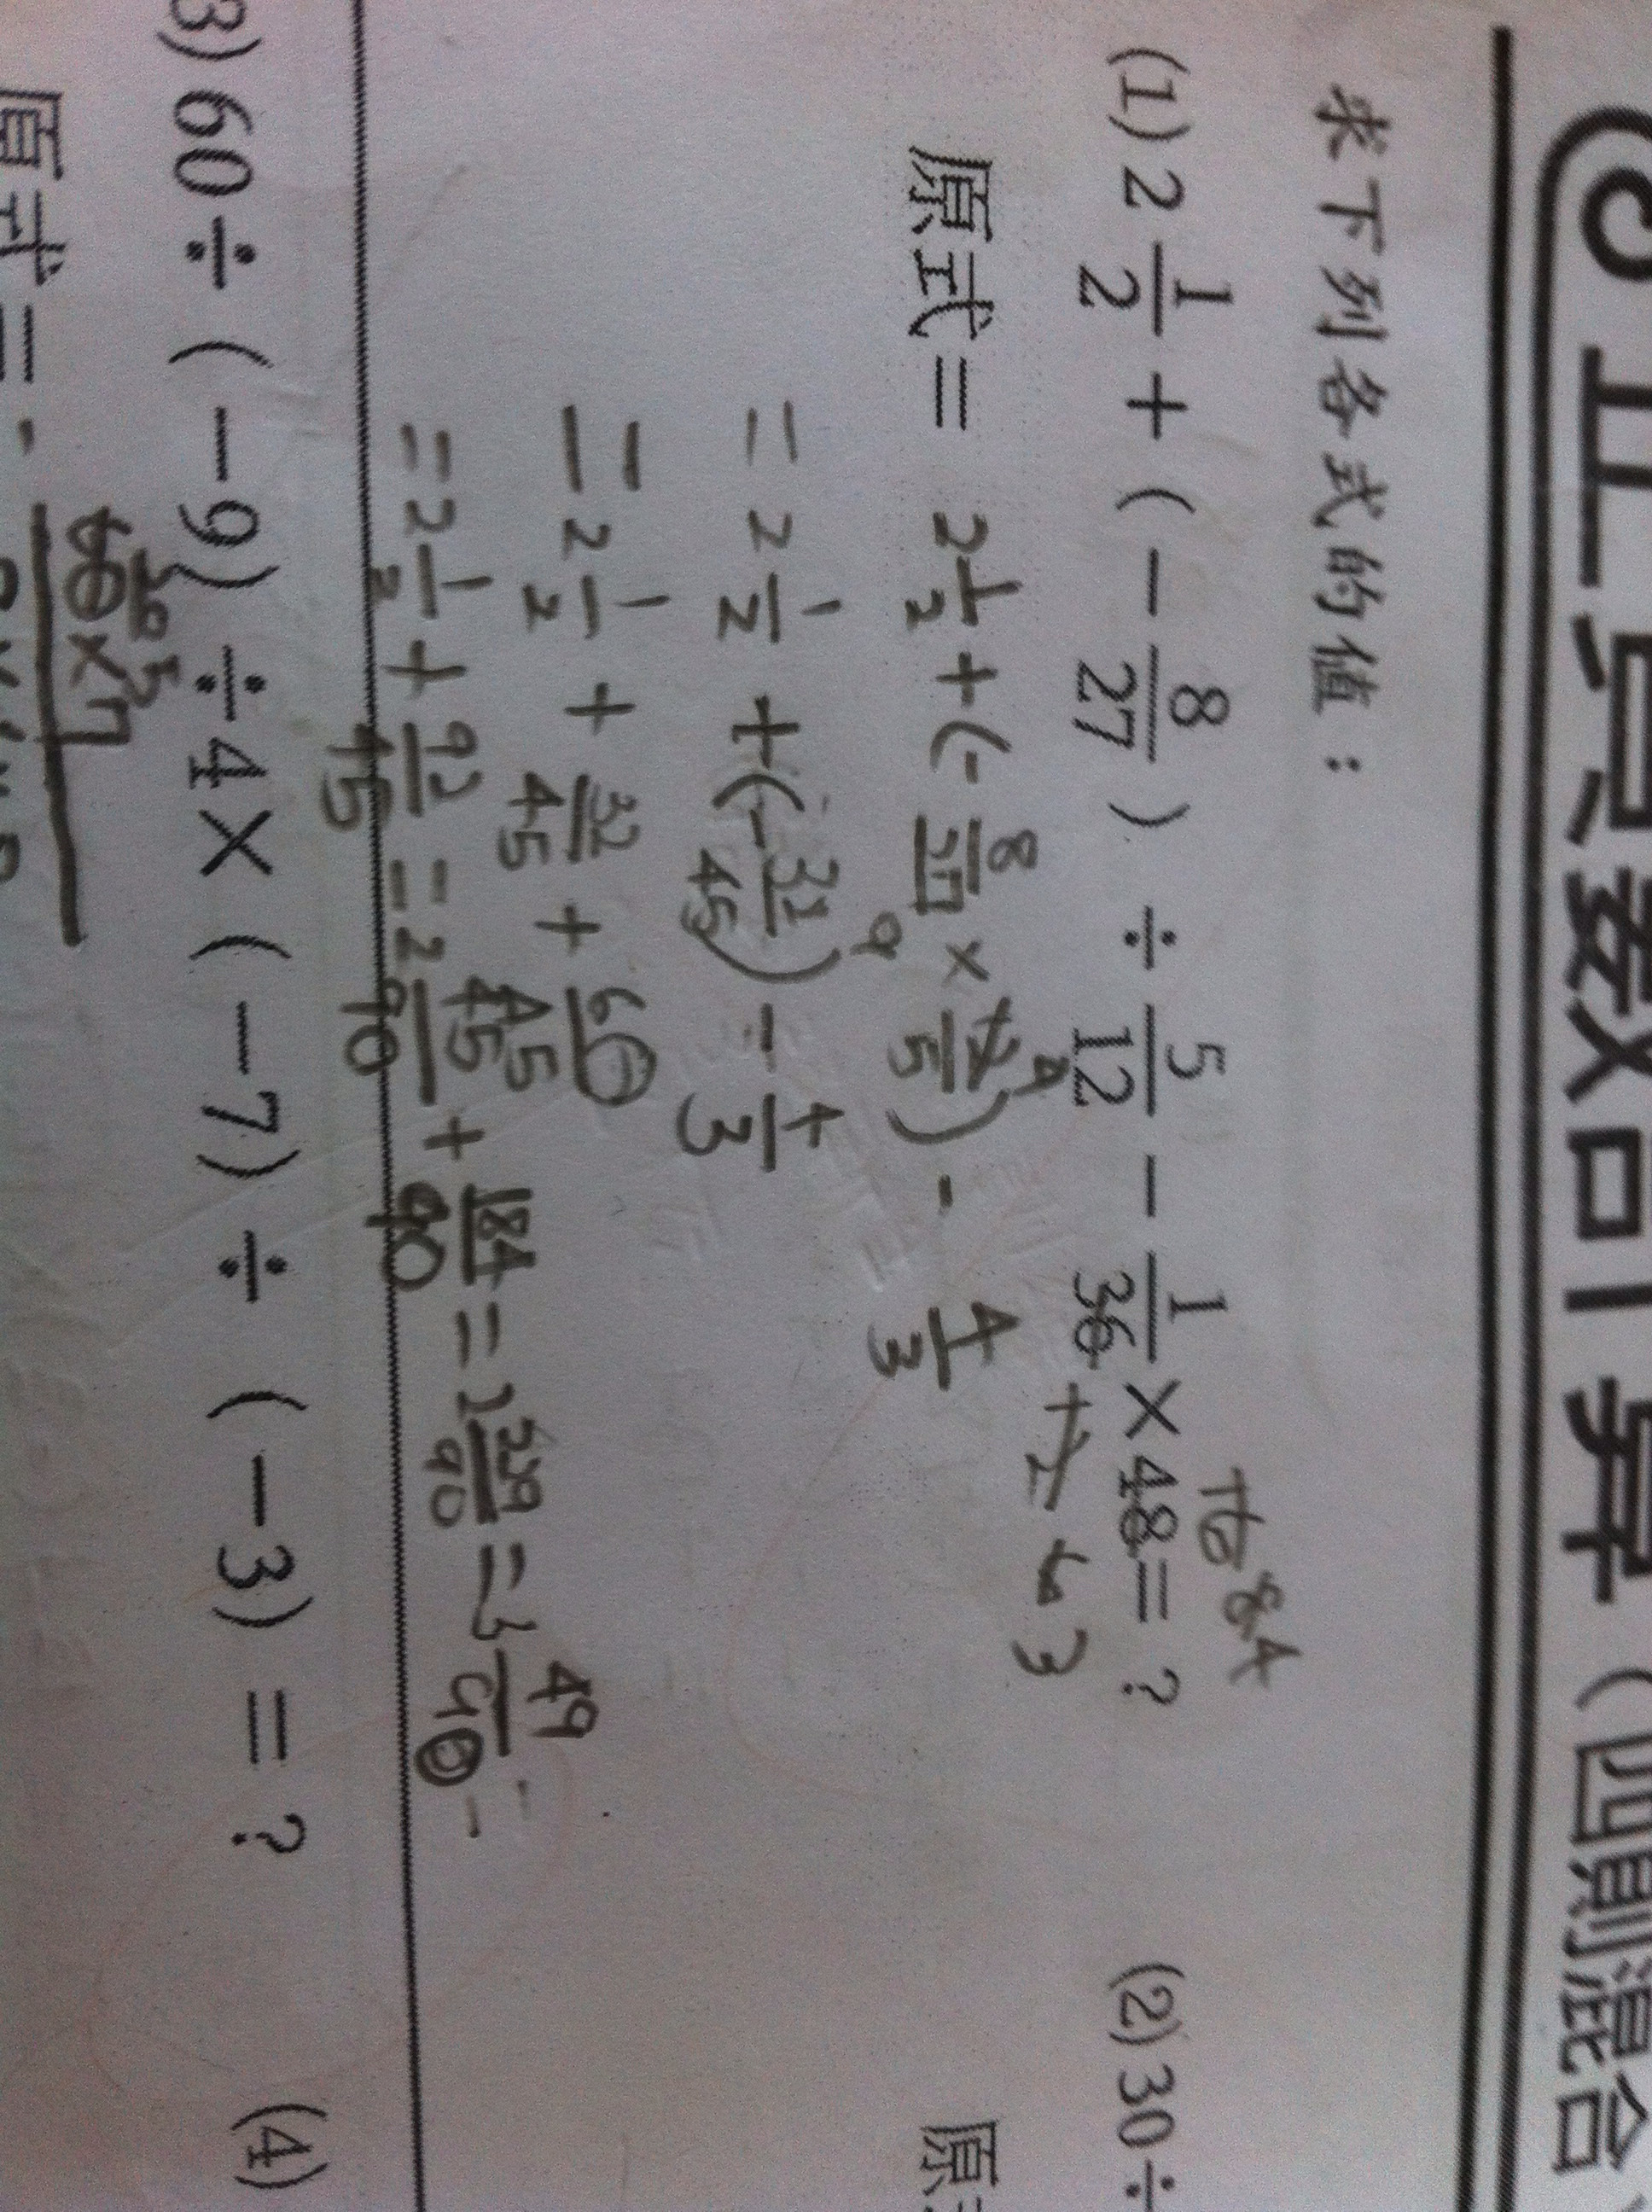 求下列各式的值：
(1) 2 1/2 + ( − 8/27 ) ÷ 5/12 − 1/36 × 48 = ?
原式 = 2 1/2 + (- 8/27 × 12/5) - 4/3
= 2 1/2 + (- 32/45) - 4/3
= 2 1/2 + 32/45 + 60/45
= 2 1/2 + 92/45 = 2 45/90 + 184/90 = 2 229/90 = 3 49/90
(2) 30 ÷
原
3) 60 ÷ ( −9) ÷ 4 × ( −7) ÷ ( −3) = ?
(4)
原式 = -